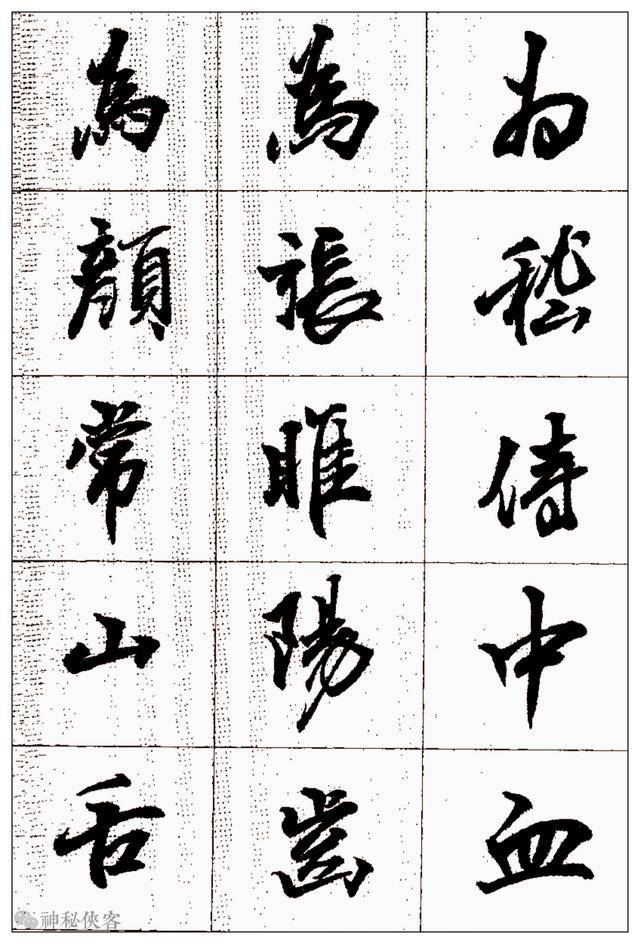 為嵇侍中血
為張睢陽齒
為顏常山舌
神秘俠客